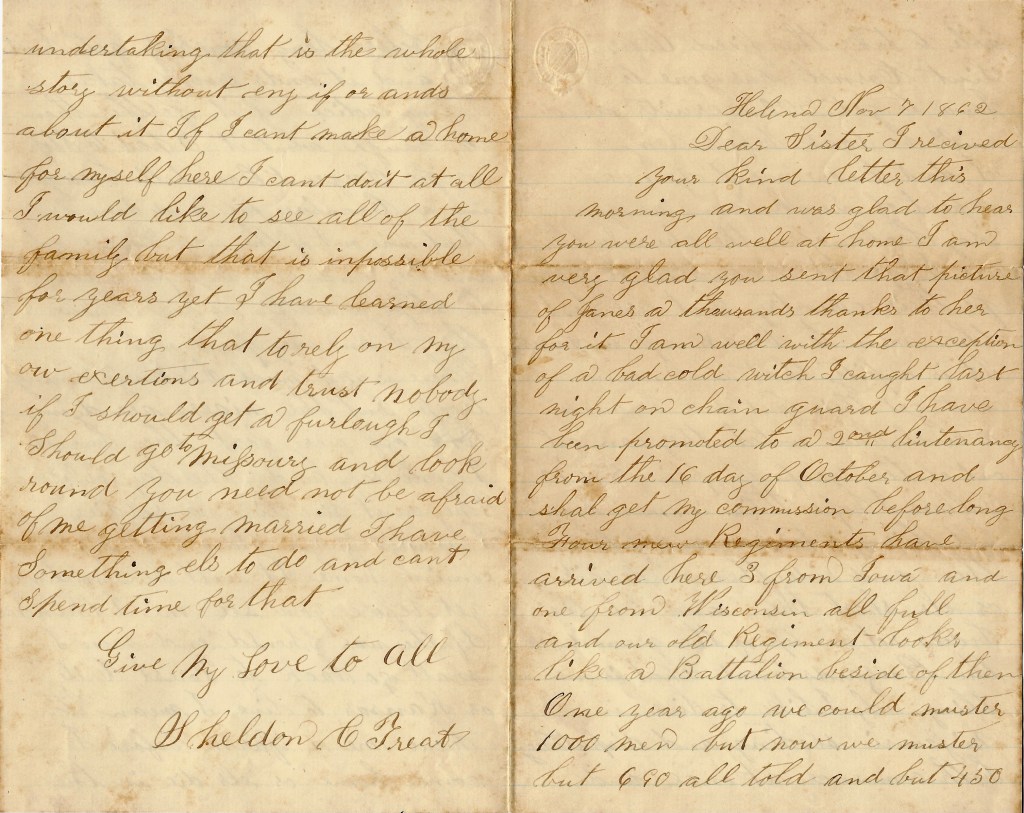 undertaking that is the whole
story without eny if or ands
about it If I cant make a home
for myself here I cant do it at all
I would like to see all of the
family but that is inpossible
for years yet I have learned
one thing that to rely on my
ow exertions and trust nobody
if I should get a furlough I
Should go to Missoury and look
round you need not be afraid
of me getting married I have
Something els to do and cant
Spend time for that
Give My Love to All
Sheldon C Treat
Helena Nov 7 1862
Dear Sister I recived
your kind letter this
morning and was glad to hear
you were all well at home I am
very glad you sent that picture
of Janes a thousands thanks to her
for it I am well with the exception
of a bad cold witch I caught last
night on chain guard I have
been promoted to a 2ond lieutenancy
from the 16 day of October and
shal get my commission before long
Four new Regiments have
arrived here 3 from Iowa and
one from Wisconsin all full
and our old Regiment looks
like a Battalion beside of them
One year ago we could muster
1000 men but now we muster
but 690 all told and but 450